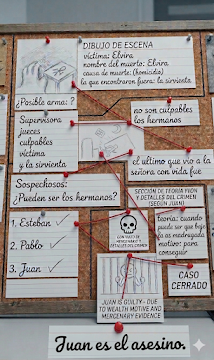 DIBUJO DE ESCENA
víctima: Elvira
nombre del muerto: Elvira
causa de muerte: (homicidio)
la que encontraron fuera: la sirvienta
¿Posible arma: ?
no son culpables
los hermanos
Supervisora
jueces
culpables
víctima
y la sirvienta
el ultimo que vio a la
señora con vida fue
Sospechosos:
¿Pueden ser los hermanos?
SECCIÓN DE TEORÍA
Y DETALLES DEL CRIMEN
(SEGÚN JUAN)
1. Esteban ✓
2. Pablo ✓
3. Juan ✓
teoría: cuando
puede ser que bajo
la as madrugada
motivo: para
conseguir
DETALLES DEL CRIMEN
CASO
CERRADO
JUAN IS GUILTY - DUE
TO WEALTH MOTIVE AND
MERCENARY EVIDENCE
Juan es el asesino.